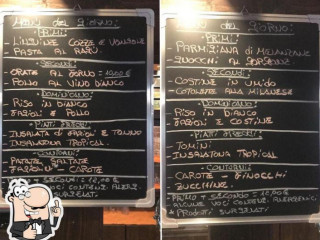 MENU DEL GIORNO:
PRIMI:
- LINGUINE COZZE E VONGOLE
- PASTA AL RAGU
SECONDI:
- ORATE AL FORNO = 10,00 €
- POLLO AL VINO BIANCO
RISO IN BIANCO
FAGIOLI E POLLO
- PIATTI FREDDI:
INSALATA DI FAGIOLI E TONNO
INSALATONA TROPICAL
- CONTORNI:
PATATE SALTATE
FAGIOLINI - CAROTE
DEL GIORNO:
- PRIMI:
- PARMIGIANA DI MELANZANE
- GNOCCHI AL
SECONDI:
- COSTINE IN UMIDO
- COTOLETTE ALLA MILANESE
RISO IN BIANCO
FAGIOLI E COSTINE
- PIATTI FREDDI:
TOMINI
INSALATONA TROPICAL
- CONTORNI:
CAROTE - FINOCCHI
ZUCCHINE
- PRIMO + SECONDO = 12,00 €
- ALCUNE VOCI CONTENG. ALLERGENICI
* PRODOTTI SURGELATI